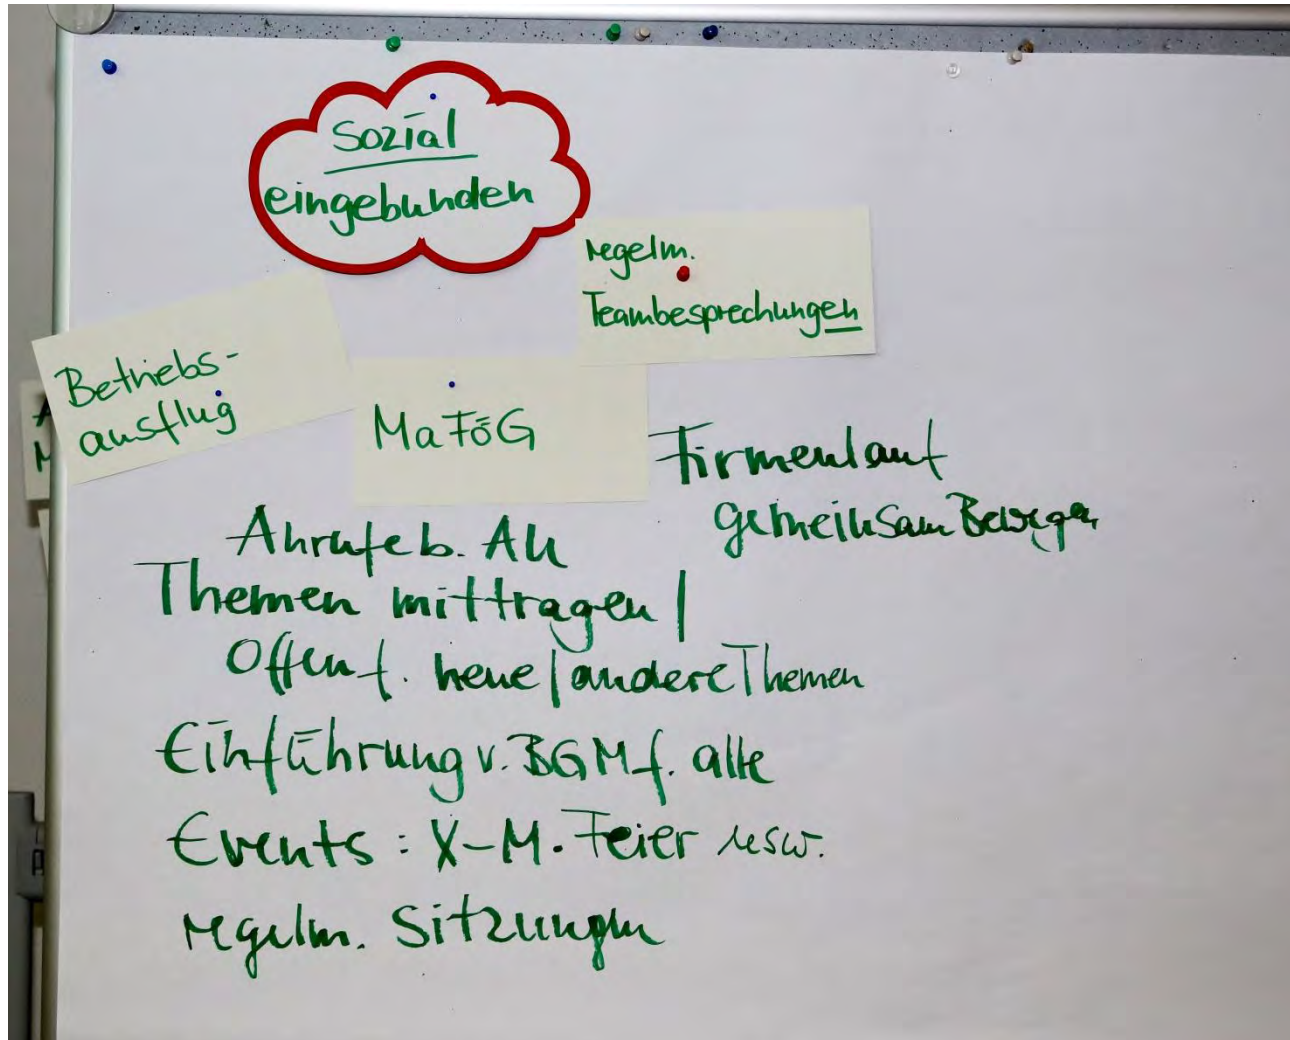 Sozial
eingebunden
regelm.
Teambesprechungen
Betriebs-
ausflug
MaFöG
Firmenlauf
gemeinsam Bewegen
Anrufe b. AN
Themen mittragen /
Offen f. neue / andere Themen
Einführung v. BGM f. alle
Events: X-M. Feier usw.
regelm. Sitzungen